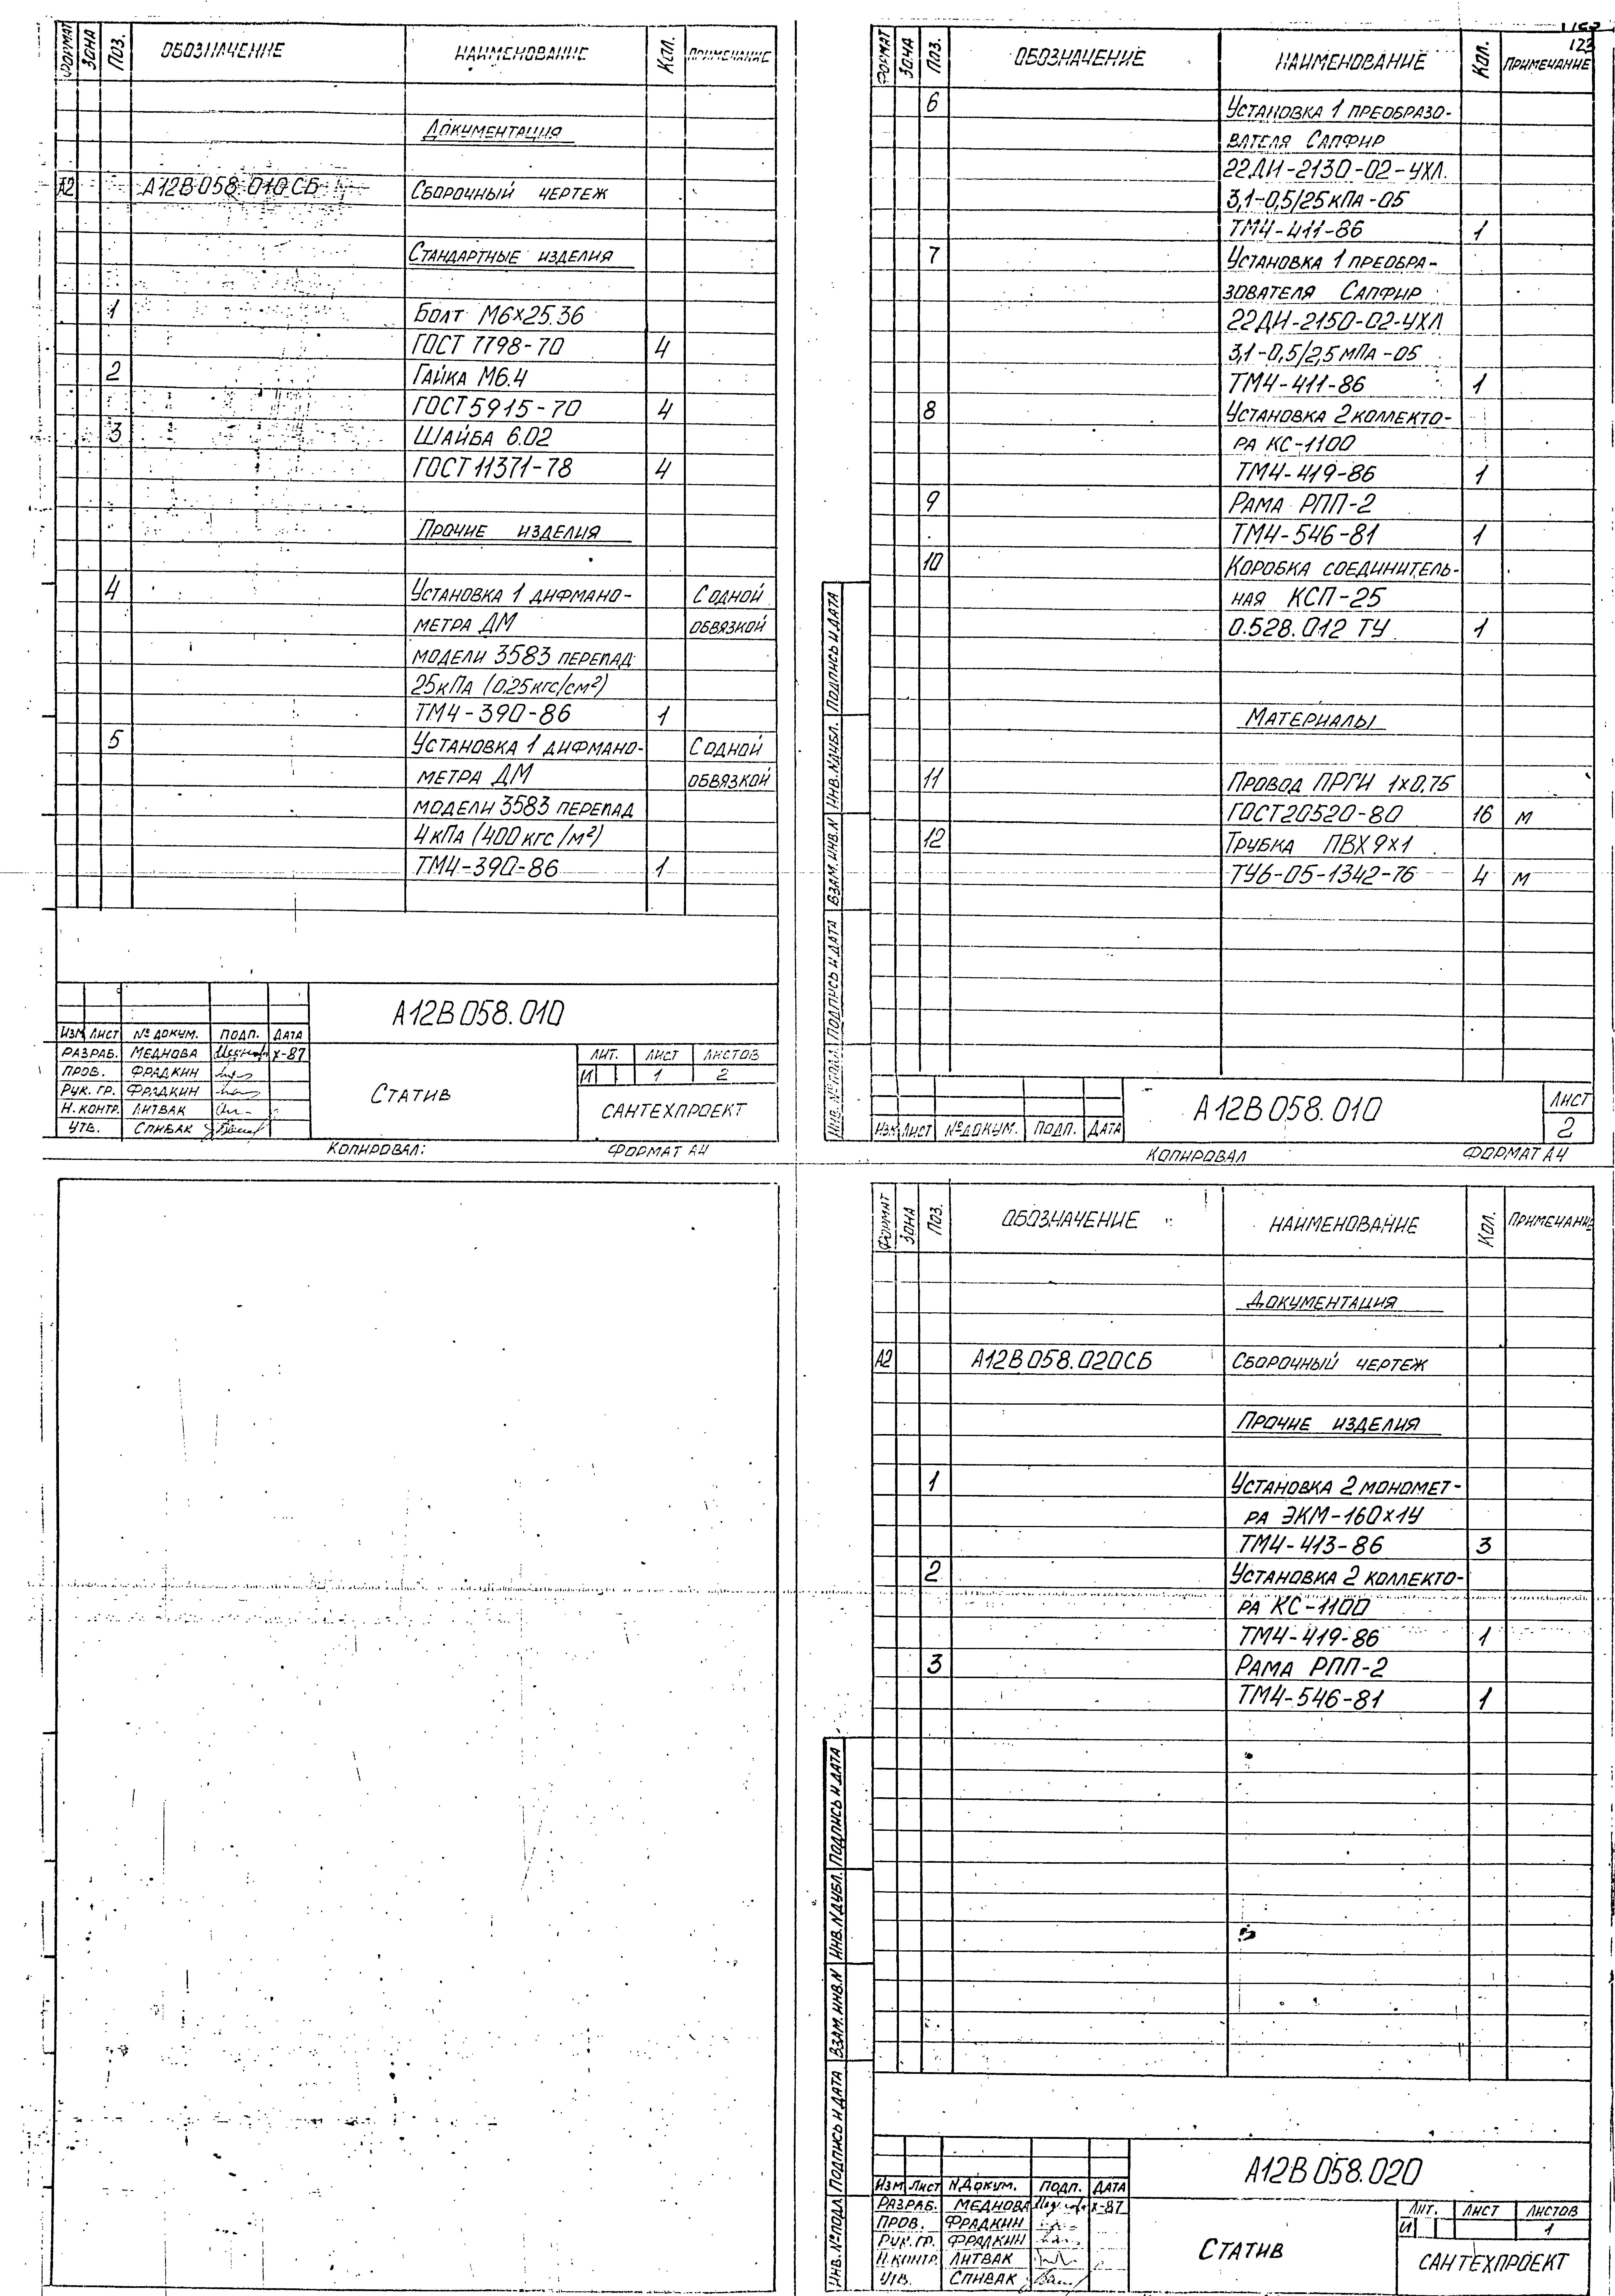 ФОРМАТ ЗОНА ПОЗ. ОБОЗНАЧЕНИЕ НАИМЕНОВАНИЕ КОЛ. ПРИМЕЧАНИЕ
ДОКУМЕНТАЦИЯ
А2 А12В058.010СБ СБОРОЧНЫЙ ЧЕРТЕЖ
СТАНДАРТНЫЕ ИЗДЕЛИЯ
1 БОЛТ М6×25.36
ГОСТ 7798-70 4
2 ГАЙКА М6.4
ГОСТ 5915-70 4
3 ШАЙБА 6.02
ГОСТ 11371-78 4
ПРОЧИЕ ИЗДЕЛИЯ
4 УСТАНОВКА 1 ДИФМАНО- С ОДНОЙ
МЕТРА ДМ ОБВЯЗКОЙ
МОДЕЛИ 3583 ПЕРЕПАД
25кПа (0.25кгс/см²)
ТМ4-390-86 1
5 УСТАНОВКА 1 ДИФМАНО- С ОДНОЙ
МЕТРА ДМ ОБВЯЗКОЙ
МОДЕЛИ 3583 ПЕРЕПАД
4кПа (400кгс/м²)
ТМ4-390-86 1
А12В058.010
ИЗМ ЛИСТ № ДОКУМ. ПОДП. ДАТА
РАЗРАБ. МЕДНОВА X-87
ПРОВ. ФРАДКИН
РУК. ГР. ФРАДКИН
Н.КОНТР. ЛИТВАК
УТВ. СПИВАК
СТАТИВ
ЛИТ. ЛИСТ ЛИСТОВ
И 1 2
САНТЕХПРОЕКТ
КОПИРОВАЛ: ФОРМАТ А4
123
ФОРМАТ ЗОНА ПОЗ. ОБОЗНАЧЕНИЕ НАИМЕНОВАНИЕ КОЛ. ПРИМЕЧАНИЕ
6 УСТАНОВКА 1 ПРЕОБРАЗО-
ВАТЕЛЯ САПФИР
22ДИ-2130-02-УХЛ.
3,1-0,5/25КПА-05
ТМ4-411-86 1
7 УСТАНОВКА 1 ПРЕОБРА-
ЗОВАТЕЛЯ САПФИР
22ДИ-2150-02-УХЛ
3,1-0,5/2,5МПА-05
ТМ4-411-86 1
8 УСТАНОВКА 2 КОЛЛЕКТО-
РА КС-1100
ТМ4-419-86 1
9 РАМА РПП-2
ТМ4-546-81 1
10 КОРОБКА СОЕДИНИТЕЛЬ-
НАЯ КСП-25
0.528.012 ТУ 1
МАТЕРИАЛЫ
11 ПРОВОД ПРГИ 1×0,75
ГОСТ20520-80 16 М
12 ТРУБКА ПВХ 9×1
ТУ6-05-1342-76 4 М
ИНВ. № ПОДЛ. ПОДПИСЬ И ДАТА ВЗАМ. ИНВ.N ИНВ.NДУБЛ. ПОДПИСЬ И ДАТА
ИЗМ ЛИСТ № ДОКУМ. ПОДП. ДАТА
А12В058.010
ЛИСТ
2
КОПИРОВАЛ ФОРМАТ А4
ФОРМАТ ЗОНА ПОЗ. ОБОЗНАЧЕНИЕ НАИМЕНОВАНИЕ КОЛ. ПРИМЕЧАНИЕ
ДОКУМЕНТАЦИЯ
А2 А12В058.020СБ СБОРОЧНЫЙ ЧЕРТЕЖ
ПРОЧИЕ ИЗДЕЛИЯ
1 УСТАНОВКА 2 МОНОМЕТ-
РА ЭКМ-160×1У
ТМ4-413-86 3
2 УСТАНОВКА 2 КОЛЛЕКТО-
РА КС-1100
ТМ4-419-86 1
3 РАМА РПП-2
ТМ4-546-81 1
ИНВ.№ПОДЛ ПОДПИСЬ И ДАТА ВЗАМ.ИНВ.N ИНВ.NДУБЛ. ПОДПИСЬ И ДАТА
А12В058.020
ИЗМ ЛИСТ NДОКУМ. ПОДП. ДАТА
РАЗРАБ. МЕДНОВА X-87
ПРОВ. ФРАДКИН
РУК.ГР. ФРАДКИН
Н.КОНТР. ЛИТВАК
УТВ. СПИВАК
СТАТИВ
ЛИТ. ЛИСТ ЛИСТОВ
И 1
САНТЕХПРОЕКТ